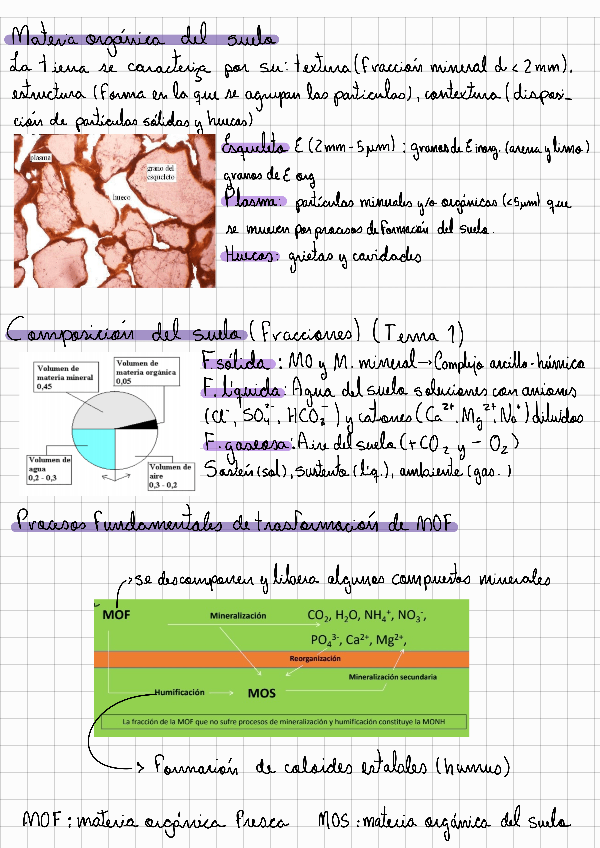 Materia orgánica del suelo
La tierra se caracteriza por su: textura (fracción mineral d < 2mm),
estructura (forma en la que se agrupan las partículas), contextura (disposi-
ción de partículas sólidas y huecos)
plasma
grano del
esqueleto
hueco
Esqueleto E (2mm-5µm): granos de E inorg. (arena y limo)
granos de E org
Plasma: partículas minerales y/o orgánicas (<5µm) que
se mueven por procesos de formación del suelo.
Huecos: grietas y cavidades
Composición del suelo (fracciones) (Tema 1)
Volumen de
materia mineral
0,45
Volumen de
materia orgánica
0,05
Volumen de
agua
0,2 - 0,3
Volumen de
aire
0,3 - 0,2
F. sólida: MO y M. mineral → Complejo arcillo-húmico
F. líquida: Agua del suelo soluciones con aniones
(Cl⁻, SO₄²⁻, HCO₃⁻) y cationes (Ca²⁺, Mg²⁺, Na⁺) diluidos
F. gaseosa: Aire del suelo (+CO₂ y - O₂)
Sostén (sol), sustento (líq.), ambiente (gas.)
Procesos fundamentales de trasformación de MOF
→ se descomponen y libera algunos compuestos minerales
MOF
Mineralización
CO₂, H₂O, NH₄⁺, NO₃⁻,
PO₄³⁻, Ca²⁺, Mg²⁺,
Reorganización
Mineralización secundaria
Humificación
MOS
La fracción de la MOF que no sufre procesos de mineralización y humificación constituye la MONH
→ Formación de coloides estables (humus)
MOF: materia orgánica fresca MOS: materia orgánica del suelo